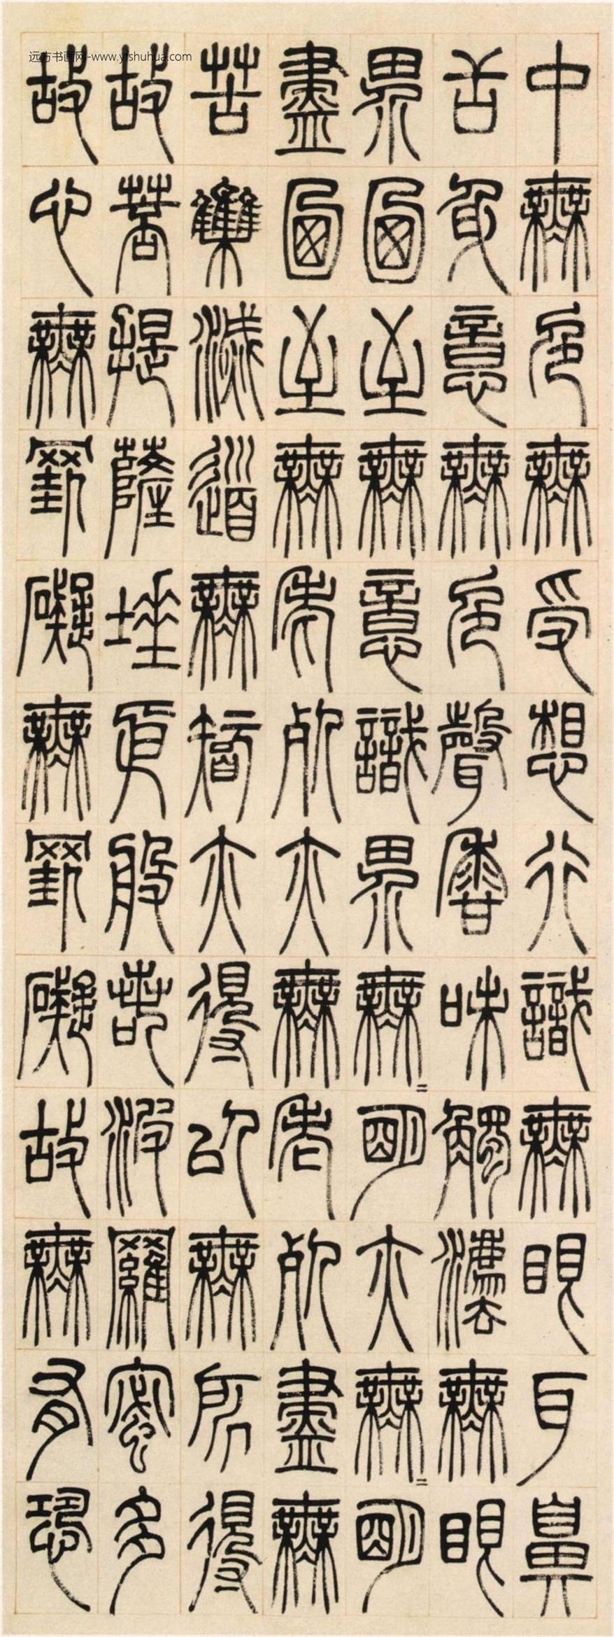 远方书画网-www.yishuhua.com
中無色無受想行識無眼耳鼻
舌身意無色聲香味觸法無眼
界迺至無意識界無=明亦無=明
盡迺至無老死亦無老死盡無
苦集滅道無智亦得以無所得
故菩提薩埵依般若波羅蜜多
故心無罣礙無罣礙故無有恐